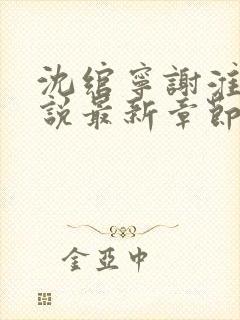 沈綰寧謝淮
說最新章節
金亞中